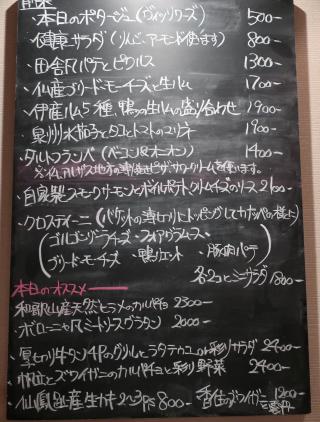 前菜
・本日のポタージュ(ヴィシソワーズ) 500-
・健康サラダ(リンゴ、アーモンド使います) 800-
・田舎風パテとピクルス 1300-
・仏産ブリードモーチーズと生ハム 1700-
・伊産ハム5種、鴨の生ハムの盛り合わせ 1900-
・泉州水茄子とタコとトマトのマリネ 1900-
・タルトフランベ(ベーコン&オニオン) 1400-
アルザス地方の薄焼ピザ、サワークリームを使います。
・自家製スモークサーモンとボイルポテト、クリームチーズのソース 2100-
・クロスティーニ(バゲットの薄切りにトッピングしてカナッペの様に)
ゴルゴンゾーラチーズ ・フォアグラムース
ブリードモーチーズ ・鴨リエット ・豚肉パテ
各2コとミニサラダ 1800-
本日のオススメ
和歌山産天然ヒラメのカルパチョ 2300-
・ボローニャ風ミートソースグラタン 2000-
・厚切り牛タン4Pのグリル とラタテゥユor彩りサラダ 2400-
・帆立とズワイガニのカルパチョと彩り野菜 2400-
・仙鳳趾産生カキ 2~3Ps 800-
香住のズワイガニ 1200-